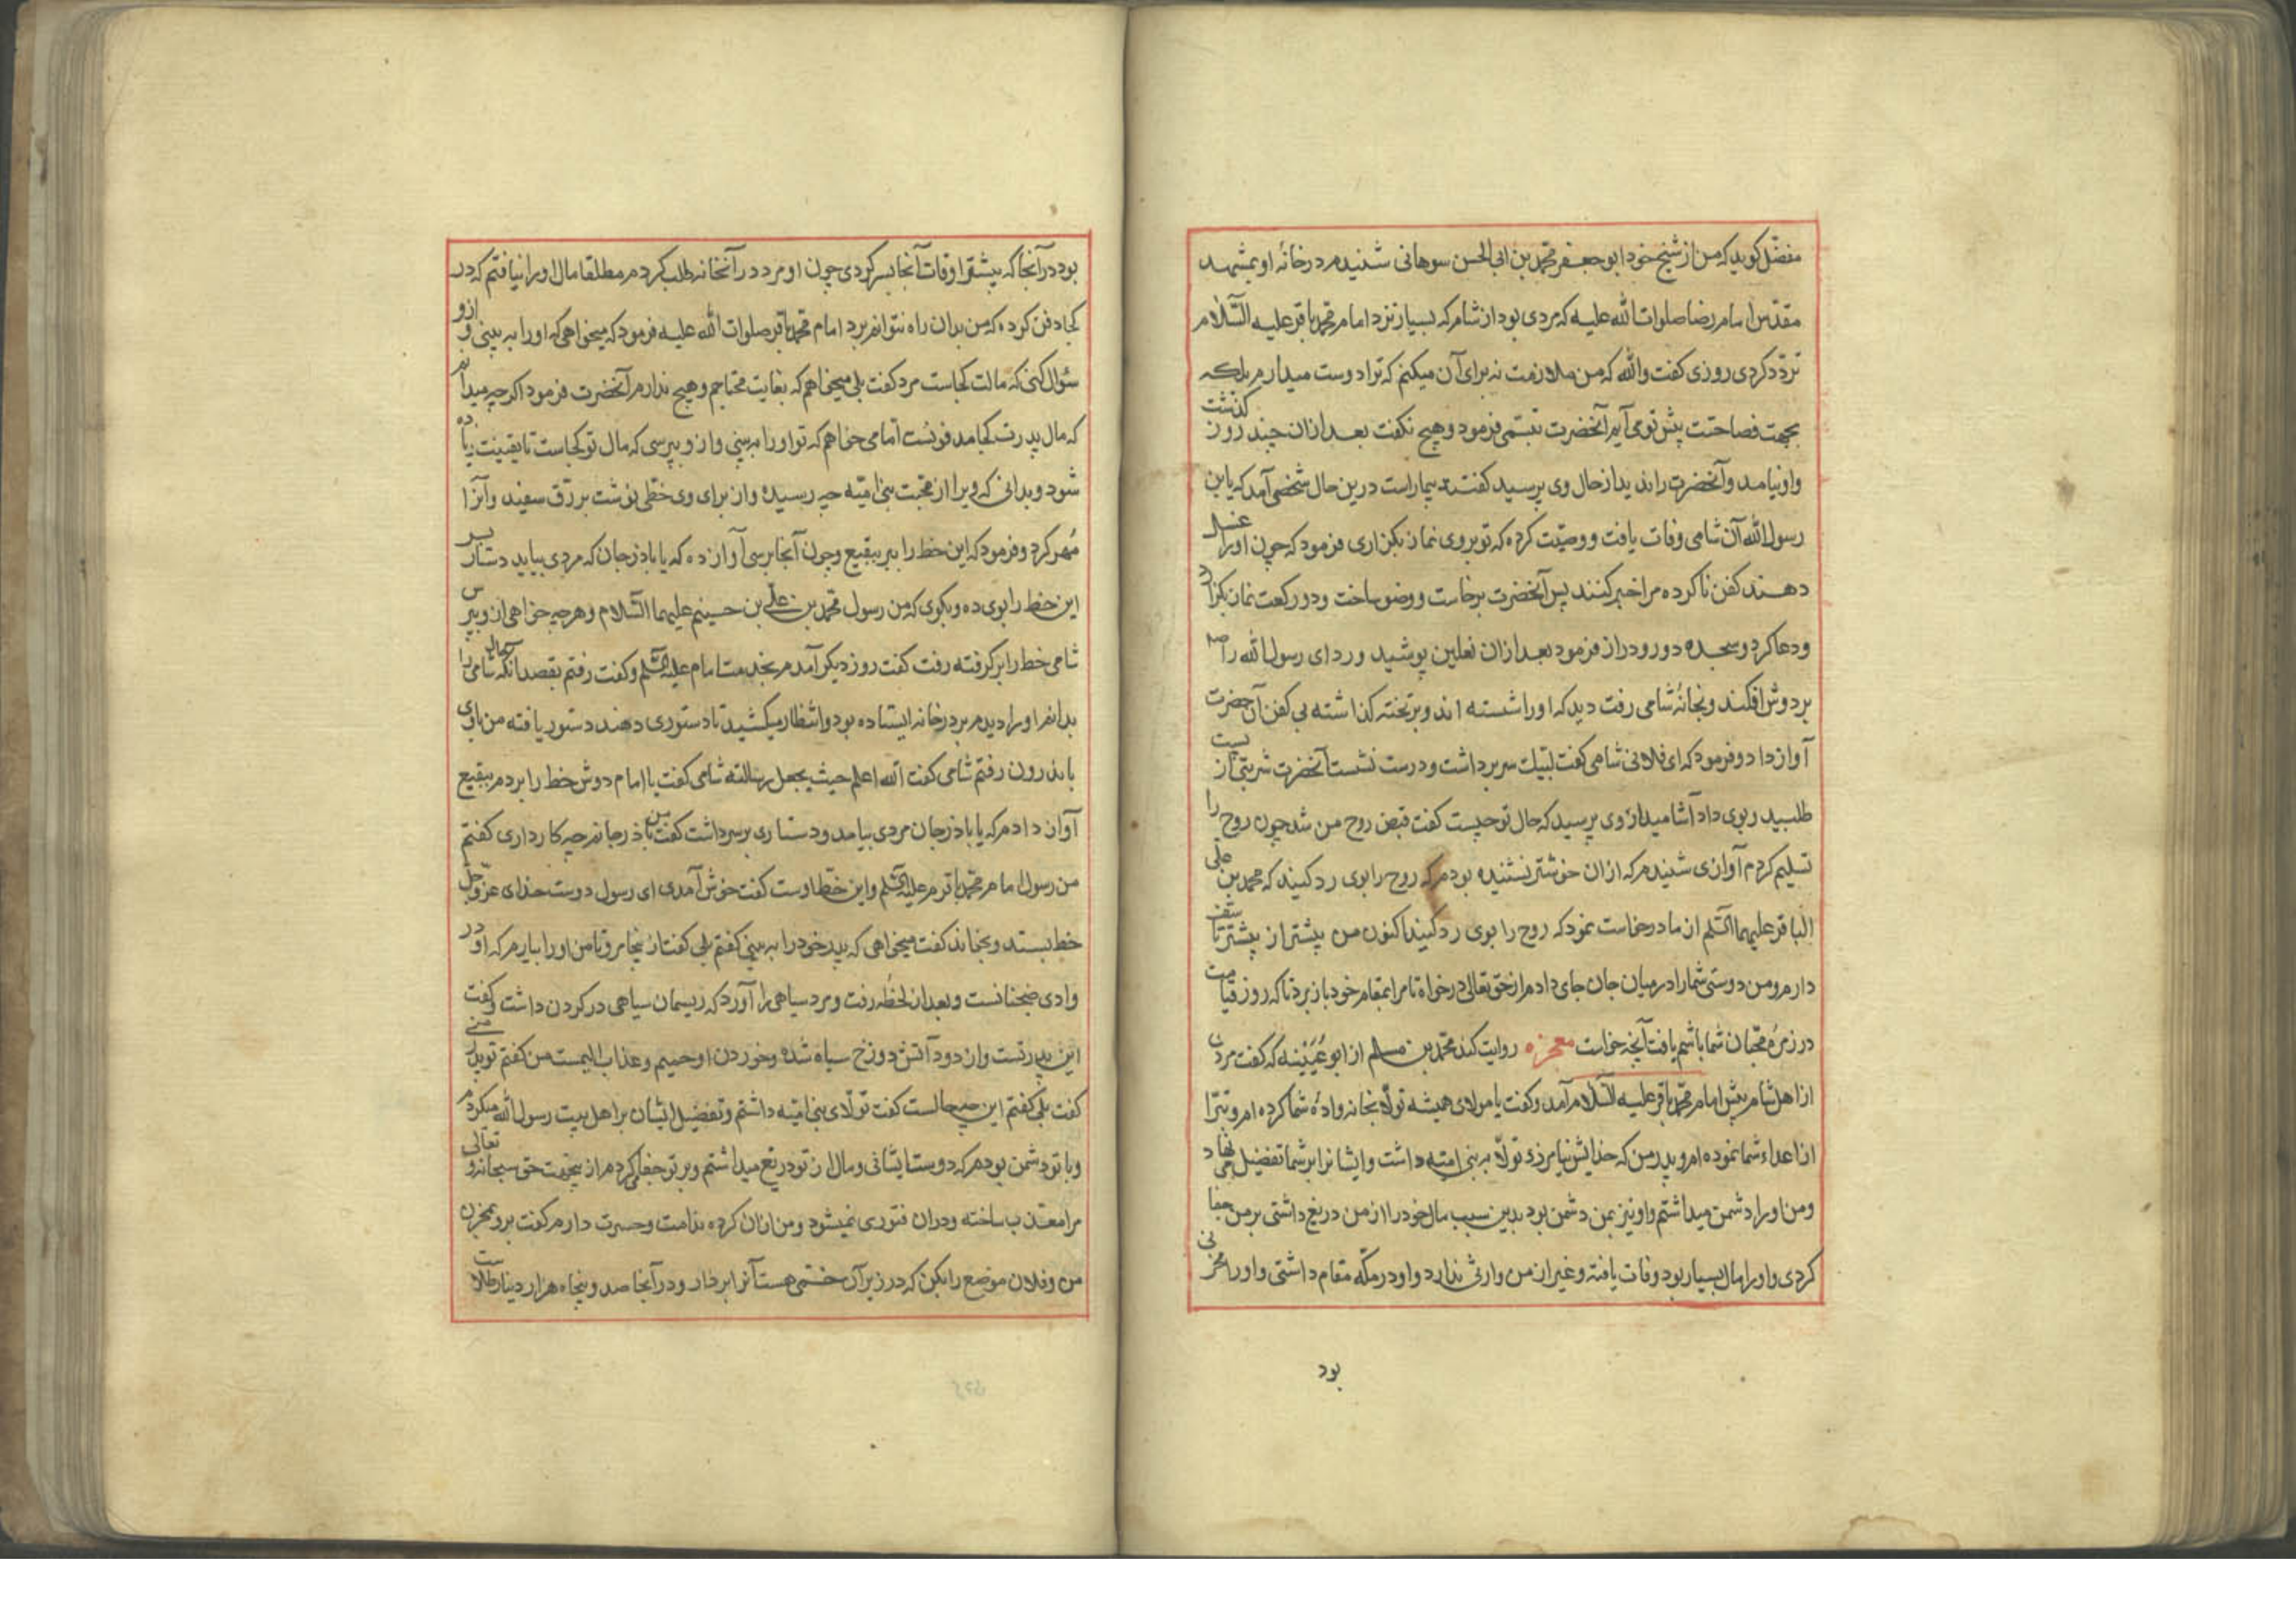 مفضّل کوید که من از شیخ خود ابو جعفر محمّد بن ابی الحسن سوهانی شنیدم در خانهٔ او بمشهد
مقدّس امام رضا صلوات الله علیه که مردی بود از شام که بسیار نزد امام محمّد باقر علیه السّلام
تردّد کردی روزی کفت والله که من ملازمت نه برای آن میکنم که ترا دوست میدارم بلکه
بجهت فصاحتت پیش تو می آیم آنحضرت تبسّمی فرمود و هیچ نکفت بعد ازان چند روز کذشت
و او نیامد و آنحضرت را ندید از حال وی پرسید کفتند بیمار است درین حال شخصی آمد که یا بن
رسول الله آن شامی وفات یافت و وصیّت کرده که تو بروی نماز بکزاری فرمود که چون اورا غسل
دهند کفن ناکرده مرا خبر کنند پس آنحضرت برخاست و وضو ساخت و دو رکعت نماز بکزارد
و دعا کرد و سجده دور و دراز فرمود بعد ازان نعلین پوشید و ردای رسول الله را صم
بر دوش افکند و بخانهٔ شامی رفت دید که اورا شسته اند و بر تخته کذاشته بی کفن آن حضرت
آواز داد و فرمود که ای فلانی شامی کفت لبّیک سر برداشت و درست نشست آنحضرت شربتی از بست
طلبید و بوی داد آشامید از وی پرسید که حال تو چیست کفت قبض روح من شد چون روح را
تسلیم کردم آوازی شنیدم که ازان خوشتر نشنیده بودم که روح را بوی رد کنید که محمد بن علی
الباقر علیهما السّلم از ما درخواست نمود که روح را بوی رد کنید اکنون من پیشتر از پیشتر تاسّف
دارم و من دوستی شما را در میان جان جای دادم از حق تعالی درخواه تا مرا بمقام خود باز برد تا که روز قیامت
در زمرهٔ محبّان شما باشم یافت آنچه خواست معجزه روایت کند محمّد بن مسلم از ابو عُیَینه که کفت مردی
از اهل شام پیش امام محمّد باقر علیه السّلام آمد و کفت یا مولای همیشه تولّا بخانوادهٔ شما کرده ام و تبرّا
از اعداء شما نموده ام و پدر من که خدایش نیامرزد تولّا به بنی امیّه داشت و ایشانرا بر شما تفضیل می نهاد
و من اورا دشمن میداشتم و او نیز بمن دشمن بود بدین سبب مال خود را از من دریغ داشتی بر من جفا
کردی و اورا مال بسیار بود وفات یافته و غیر از من وارثی ندارد و او در مکّه مقام داشتی و اورا مخزنی
بود
بود در آنجا که بیشتر اوقات آنجا بسر کردی چون او مرد در آنخانه طلب کردم مطلقا مال اورا نیافتم که در
کجا دفن کرده که من بدان راه نتوانم برد امام محمّد باقر صلوات الله علیه فرمود که میخواهی که اورا به بینی و ازو
سئوال کنی که مالت کجاست مرد کفت بلی میخواهم که بغایت محتاجم و هیچ ندارم آنحضرت فرمود اکر چه میدانم
که مال پدرت کجا مدفونست امّا می خواهم که تو اورا به بینی و ازو بپرسی که مال تو کجاست تا یقینت زیاده
شود و بدانی که ویرا از محبّت بنی امیّه چه رسیده و از برای وی خطّی نوشت بر رقّ سفید و آنرا
مُهر کرد و فرمود که این خط را ببر ببقیع و چون آنجا برسی آواز ده که یا باذرجان که مردی بیاید دستار بسر
این خط را بوی ده و بکوی که من رسول محمّد بن علی بن حسینم علیهما السّلام و هرچه خواهی ازو بپرس
شامی خط را بر کرفته رفت کفت روز دیکر آمدم بخدمت امام علیه السّلم و کفت رفتم بقصد آنکه حال شامی را
بدانم اورا دیدم بر در خانه ایستاده بود و انتظار میکشید تا دستوری دهند دستور یافته من با وی
باندرون رفتم شامی کفت الله اعلم حیث یجعل رسالته شامی کفت یا امام دوش خط را بردم ببقیع
آواز دادم که یا باذرجان مردی بیامد و دستاری بر سر داشت کفت من باذرجانم چه کار داری کفتم
من رسول امام محمّد باقرم علیه السّلم و این خطّ اوست کفت خوش آمدی ای رسول دوست خدای عزّ و جلّ
خط بستد و بخواند کفت میخواهی که پدر خود را به بینی کفتم بلی کفت از ینجا مرو تا من اورا بیارم که او در
وادی ضجنانست و بعد از لحظهٔ رفت و مرد سیاهی را آورد که ریسمان سیاهی در کردن داشت و کفت
این پدر تست و از دود آتش دوزخ سیاه شده و خوردن او حمیم و عذاب الیمست من کفتم تو پدر منی
کفت بلی کفتم این چه حالست کفت تولّای بنی امیّه داشتم و تفضیل ایشان بر اهل بیت رسول الله میکردم
و با تو دشمن بودم که دوست ایشانی و مال از تو دریغ میداشتم و بر تو جفا می کردم از ینجهت حق سبحانه و تعالی
مرا معذّب ساخته و دران فتوری نمیشود و من ازان کرده ندامت و حسرت دارم کفت برو بمخزن
من و فلان موضع را بکن که در زیر آن خشتی هست آنرا بردار و در آنجا صد و پنجاه هزار دینار طلاست